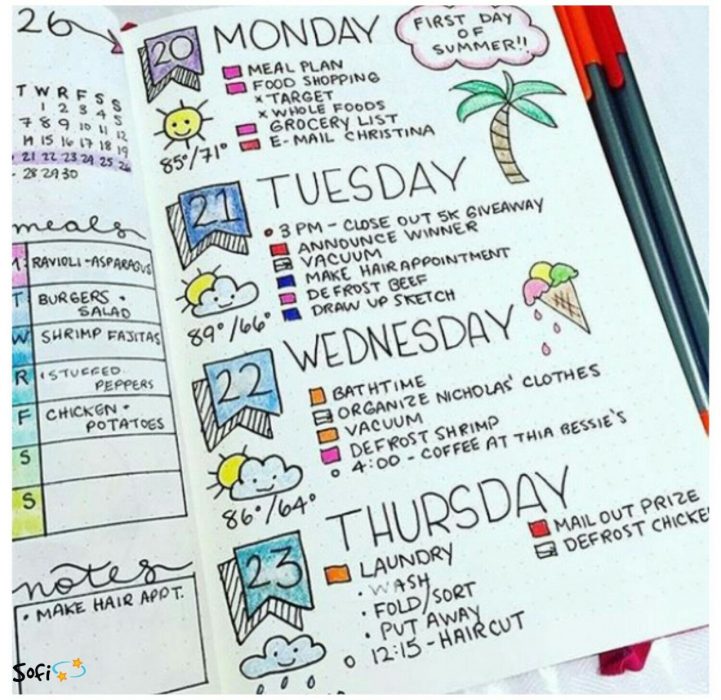 26
T W R F S S
1 2 3 4 5
7 8 9 10 11 12
14 15 16 17 18 19
21 22 23 24 25 26
28 29 30
meals
M: RAVIOLI - ASPARAGUS
T BURGERS •
SALAD
W SHRIMP FAJITAS
R STUFFED
PEPPERS
F CHICKEN •
POTATOES
S
S
notes
• MAKE HAIR APPT.
Sofi
20 MONDAY
FIRST DAY
OF
SUMMER!!
MEAL PLAN
FOOD SHOPPING
x TARGET
x WHOLE FOODS
GROCERY LIST
E-MAIL CHRISTINA
85°/71°
21 TUESDAY
3 PM - CLOSE OUT 5K GIVEAWAY
ANNOUNCE WINNER
VACUUM
MAKE HAIR APPOINTMENT
DEFROST BEEF
DRAW UP SKETCH
89°/66°
22 WEDNESDAY
BATHTIME
ORGANIZE NICHOLAS' CLOTHES
VACUUM
DEFROST SHRIMP
4:00 - COFFEE AT THIA BESSIE'S
86°/64°
23 THURSDAY
LAUNDRY
• WASH
• FOLD/SORT
• PUT AWAY
12:15 - HAIRCUT
MAIL OUT PRIZE
DEFROST CHICKE